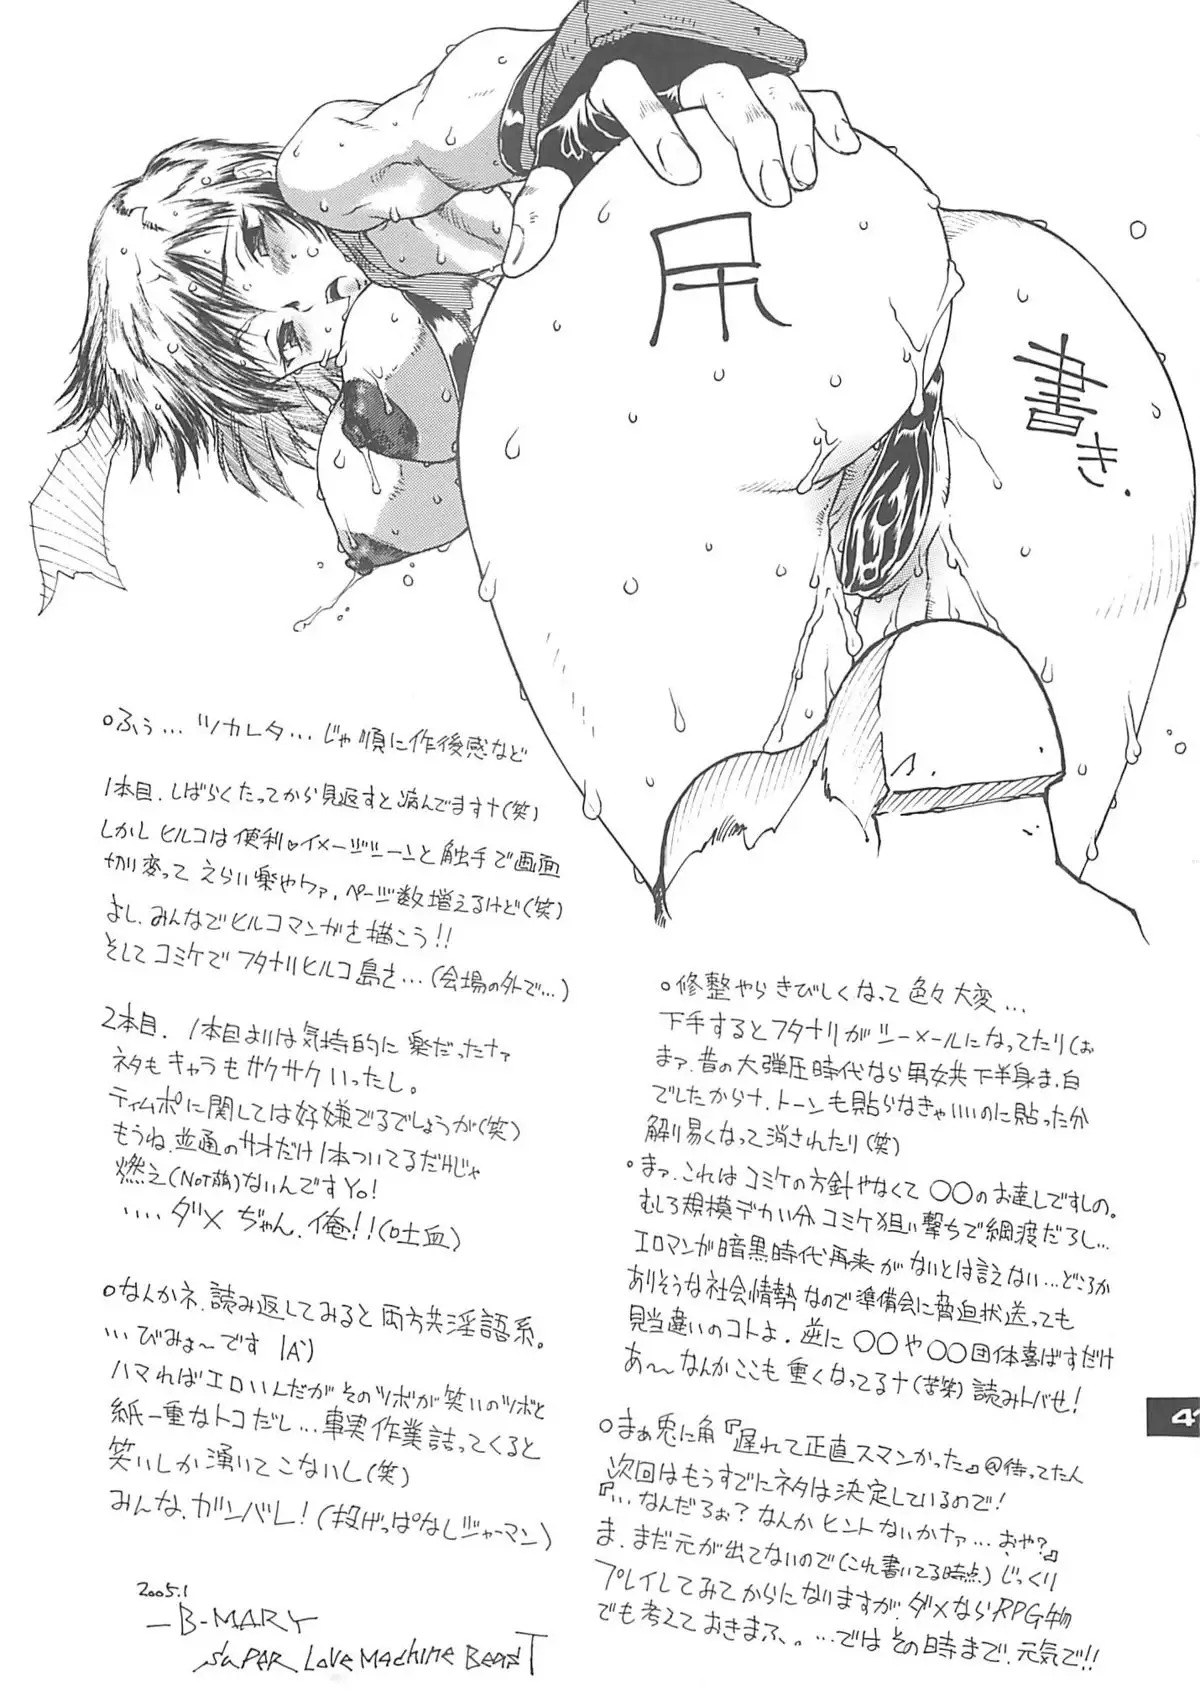 后書き.
○ふぅ…ツカレタ…じゃ順に作後感など
1本目.しばらくたってから見返すと病んでますナ(笑)
しかしヒルコは便利♥イメージシーンと触手で画面
切り変って えらい楽やワァ,ページ数増えるけど(笑)
よし.みんなでヒルコマンガを描こう!!
そしてコミケでフタナリヒルコ島を…(会場の外で…)
2本目. 1本目よりは気持的に楽だったナァ
ネタもキャラもサクサクいったし。
ティムポに関しては好嫌でるでしょうが(笑)
もうね.並通のサオだけ1本ついてるだけじゃ
燃え(NOT萌)ないんですYo!
‥‥ダメぢゃん.俺!!(吐血)
○なんかネ.読み返してみると両方共淫語系。
…びみょ〜です
ハマればエロいんだがそのツボが笑いのツボと
紙一重なトコだし…事実作業詰ってくると
笑いしか湧いてこないし(笑)
みんな.ガンバレ!(投げっぱなしジャーマン)
2005.1
B-MARY
SUPER LoveMachine Beast
○修整やら きびしくなって 色々大変…
下手するとフタナリがシーメールになってたり(ぉ
まァ.昔の大弾圧時代なら男女共下半身ま.白
でしたからナ.トーンも貼らなきゃいいのに貼った分
解り易くなって消されたり(笑)
○まァ.これはコミケの方針やなくて○○のお達しですしの。
むしろ規模デカい分コミケ狙い撃ちで綱渡だろし…
エロマンガ暗黒時代再来がないとは言えない…どころか
ありそうな社会情勢なので準備会に脅迫状送っても
見当違いのコトよ.逆に○○や○○団体喜ばすだけ
あ〜なんかここも重くなってるナ(苦笑)読みトバせ!
○まぁ兎に角『遅れて正直スマンかった』@待ってた人
次回はもうすでにネタは決定しているので!
『…なんだろぉ?なんかヒントないかナァ…おや?』
ま.まだ元が出てないので(これ書いてる時点)じっくり
プレイしてみてからになりますが.ダメならRPG物
でも考えておきまふ。。…ではその時まで.元気で!!